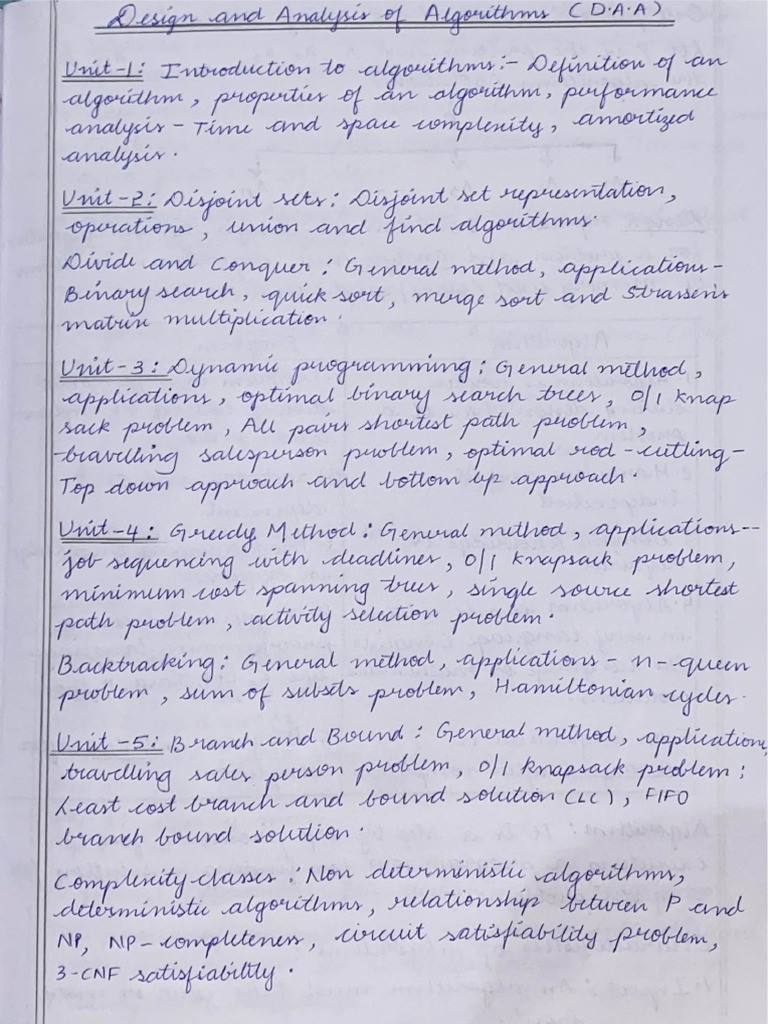 Design and Analysis of Algorithms (D.A.A)
Unit-1: Introduction to algorithms:- Definition of an
algorithm, properties of an algorithm, performance
analysis - Time and space complexity, amortized
analysis.
Unit-2: Disjoint sets: Disjoint set representation,
operations, union and find algorithms.
Divide and Conquer: General method, applications-
Binary search, quick sort, merge sort and Strassen's
matrix multiplication.
Unit-3: Dynamic programming: General method,
applications, optimal binary search trees, 0/1 knap
sack problem, All pairs shortest path problem,
travelling salesperson problem, optimal rod-cutting-
Top down approach and bottom up approach.
Unit-4: Greedy Method: General method, applications--
job sequencing with deadlines, 0/1 knapsack problem,
minimum cost spanning trees, single source shortest
path problem, activity selection problem.
Backtracking: General method, applications - n-queen
problem, sum of subsets problem, Hamiltonian cycles.
Unit-5: Branch and Bound: General method, application,
travelling sales person problem, 0/1 knapsack problem;
Least cost branch and bound solution (LC), FIFO
branch bound solution.
Complexity classes: Non deterministic algorithms,
deterministic algorithms, relationship between P and
NP, NP-completeness, circuit satisfiability problem,
3-CNF satisfiability.